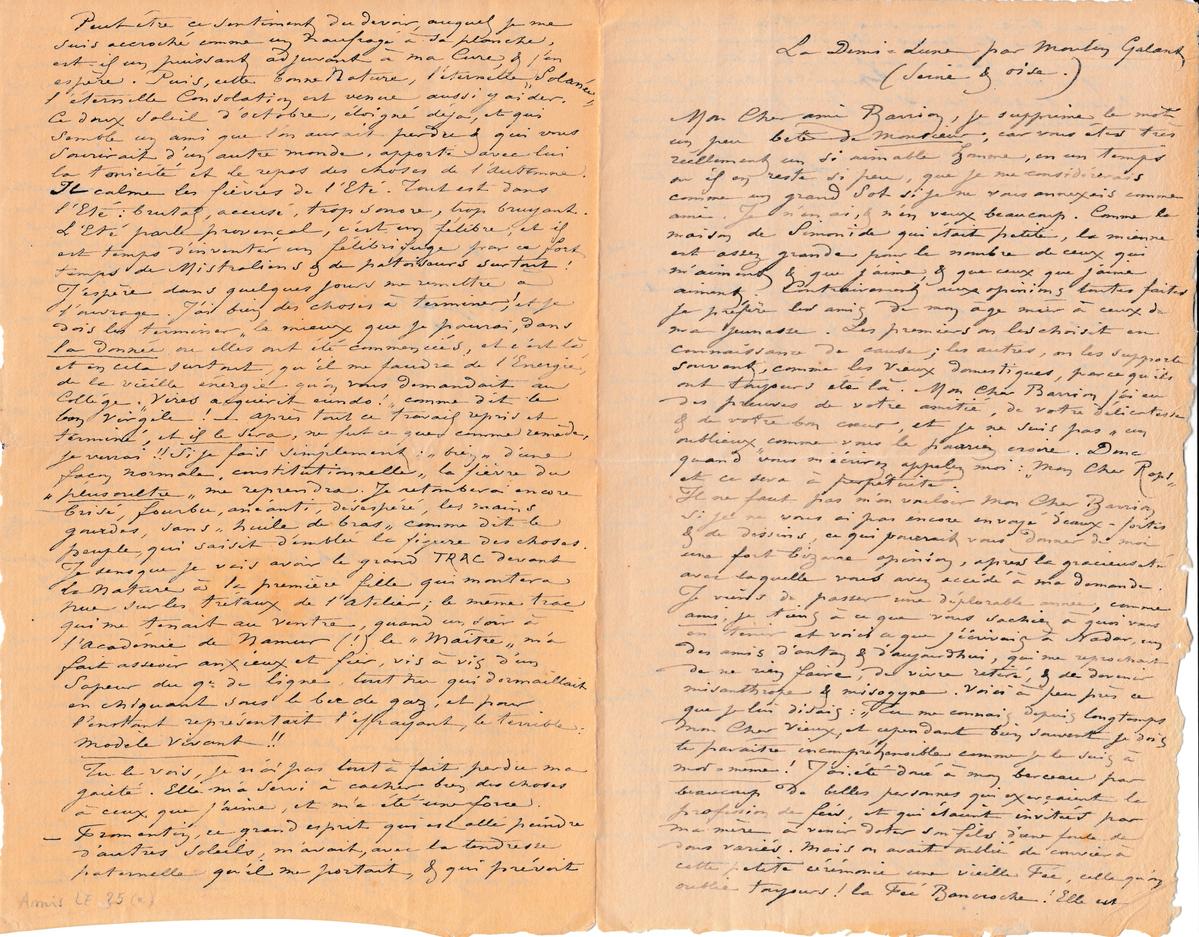 La Demi-Lune par Moulin Galant
(Seine & Oise.)
Mon Cher ami Barrion, je supprime le mot
un peu bête de Monsieur, car vous êtes très
réellement un si aimable homme, en un temps
où il en reste si peu, que je me considérerais
comme un grand Sot si je ne vous annexais comme
ami. Je n'en ai, & n'en veux beaucoup. Comme la
maison de Simonide qui était petite, la mienne
est assez grande pour le nombre de ceux qui
m'aiment & que j'aime & que ceux que j'aime
aiment. Contrairement aux opinions toutes faites
je préfère les amis de mon âge mûr à ceux de
ma jeunesse. Les premiers on les choisit en
connaissance de cause ; les autres, on les supporte
souvent, comme les vieux domestiques, parce qu'ils
ont toujours été là. Mon Cher Barrion j'ai eu
des preuves de votre amitié, de votre délicatesse
& de votre bon cœur, et je ne suis pas « un
oublieux comme vous le pourriez croire. Donc
quand vous m'écrirez appelez moi : « Mon Cher Rops »
et ce sera à perpétuité.
Il ne faut pas m'en vouloir Mon Cher Barrion
si je ne vous ai pas encore envoyé d'eaux-fortes
& de dessins, ce qui pourrait vous donner de moi
une fort bizarre opinion, après la gracieuseté
avec laquelle vous avez accédé à ma demande.
Je viens de passer une déplorable année, comme
ami, je tiens à ce que vous sachiez à quoi vous
en tenir et voici ce que j'écrivais à Nadar, un
des amis d'antan & d'aujourd'hui, qui me reprochait
de ne rien faire, de vivre retiré, & de devenir
misanthrope & misogyne. Voici à peu près ce
que je lui disais : « Tu me connais depuis longtemps
mon Cher Vieux, et cependant bien souvent je dois
te paraître incompréhensible comme je le suis à
moi-même ! J'ai été doué à mon berceau par
beaucoup de belles personnes qui exerçaient la
profession de fées, et qui étaient invitées par
ma mère à venir doter son fils d'une foule de
dons variés. Mais on avait oublié de convier à
cette petite cérémonie une vieille Fée, celle qu'on
oublie toujours ! la Fée Bancroche ! Elle est
Peut être ce sentiment du devoir, auquel je me
suis accroché comme un naufragé à sa planche,
est-il un puissant adjuvant à ma Cure & j'en
espère. Puis, cette bonne Nature, l'éternelle
l'éternelle Consolation est venue aussi y aider.
Ce doux soleil d'octobre, éloigné déjà, et qui
semble un ami que l'on aurait perdu & qui vous
sourirait d'un autre monde, apporte avec lui
la tonicité et le repos des choses de l'automne.
Il calme les fièvres de l'Eté. Tout est dans
l'Eté : brutal, accusé, trop sonore, trop bruyant.
L'Eté parle provençal, c'est un félibre, et il
est temps d'inventer un félibrifuge par ce fort
temps de Mistraliens & de patoiseurs surtout !
J'espère dans quelques jours me remettre à
l'ouvrage. J'ai bien des choses à terminer, et je
dois les terminer, le mieux que je pourrai, dans
la donnée où elles ont été commencées, et c'est là
et en cela surtout, qu'il me faudra de l'Energie,
de la vieille énergie qu'on vous demandait au
Collège. « Vires acquirit eundo ! » comme dit le
bon Virgile ! – Après tout ce travail repris et
terminé, et il le sera, ne fut ce que comme remède,
je verrai !! Si je fais simplement : « bien » d'une
façon normale, constitutionnelle, la fièvre du
« plusoultre » me reprendra. Je retomberai encore
brisé, fourbu, anéanti, désespéré, les mains
gourdes, sans « huile de bras » comme dit le
peuple, qui saisit d'emblée la figure des choses.
Je sens que je vais avoir le grand TRAC devant
la Nature à la première fille qui montera
nue sur les tréteaux de l'Atelier ; le même trac
qui me tenait au ventre, quand un soir à
l'Académie de Namur (!) le « Maître » m'a
fait asseoir anxieux et fier, vis à vis d'un
Sapeur du 9e de ligne, tout nu qui dormaillait
en chiquant sous le bec de gaz, et pour
l'instant représentait l'effrayant, le terrible :
modèle vivant !!
Tu le vois, je n'ai pas tout à fait perdu ma
gaieté. Elle m'a servi à cacher bien des choses
à ceux que j'aime, et m'a été une force.
– Fromentin, ce grand esprit qui est allé peindre
d'autres soleils, m'avait, avec la tendresse
paternelle qu'il me portait, & qui prévoit
Amis LE 35